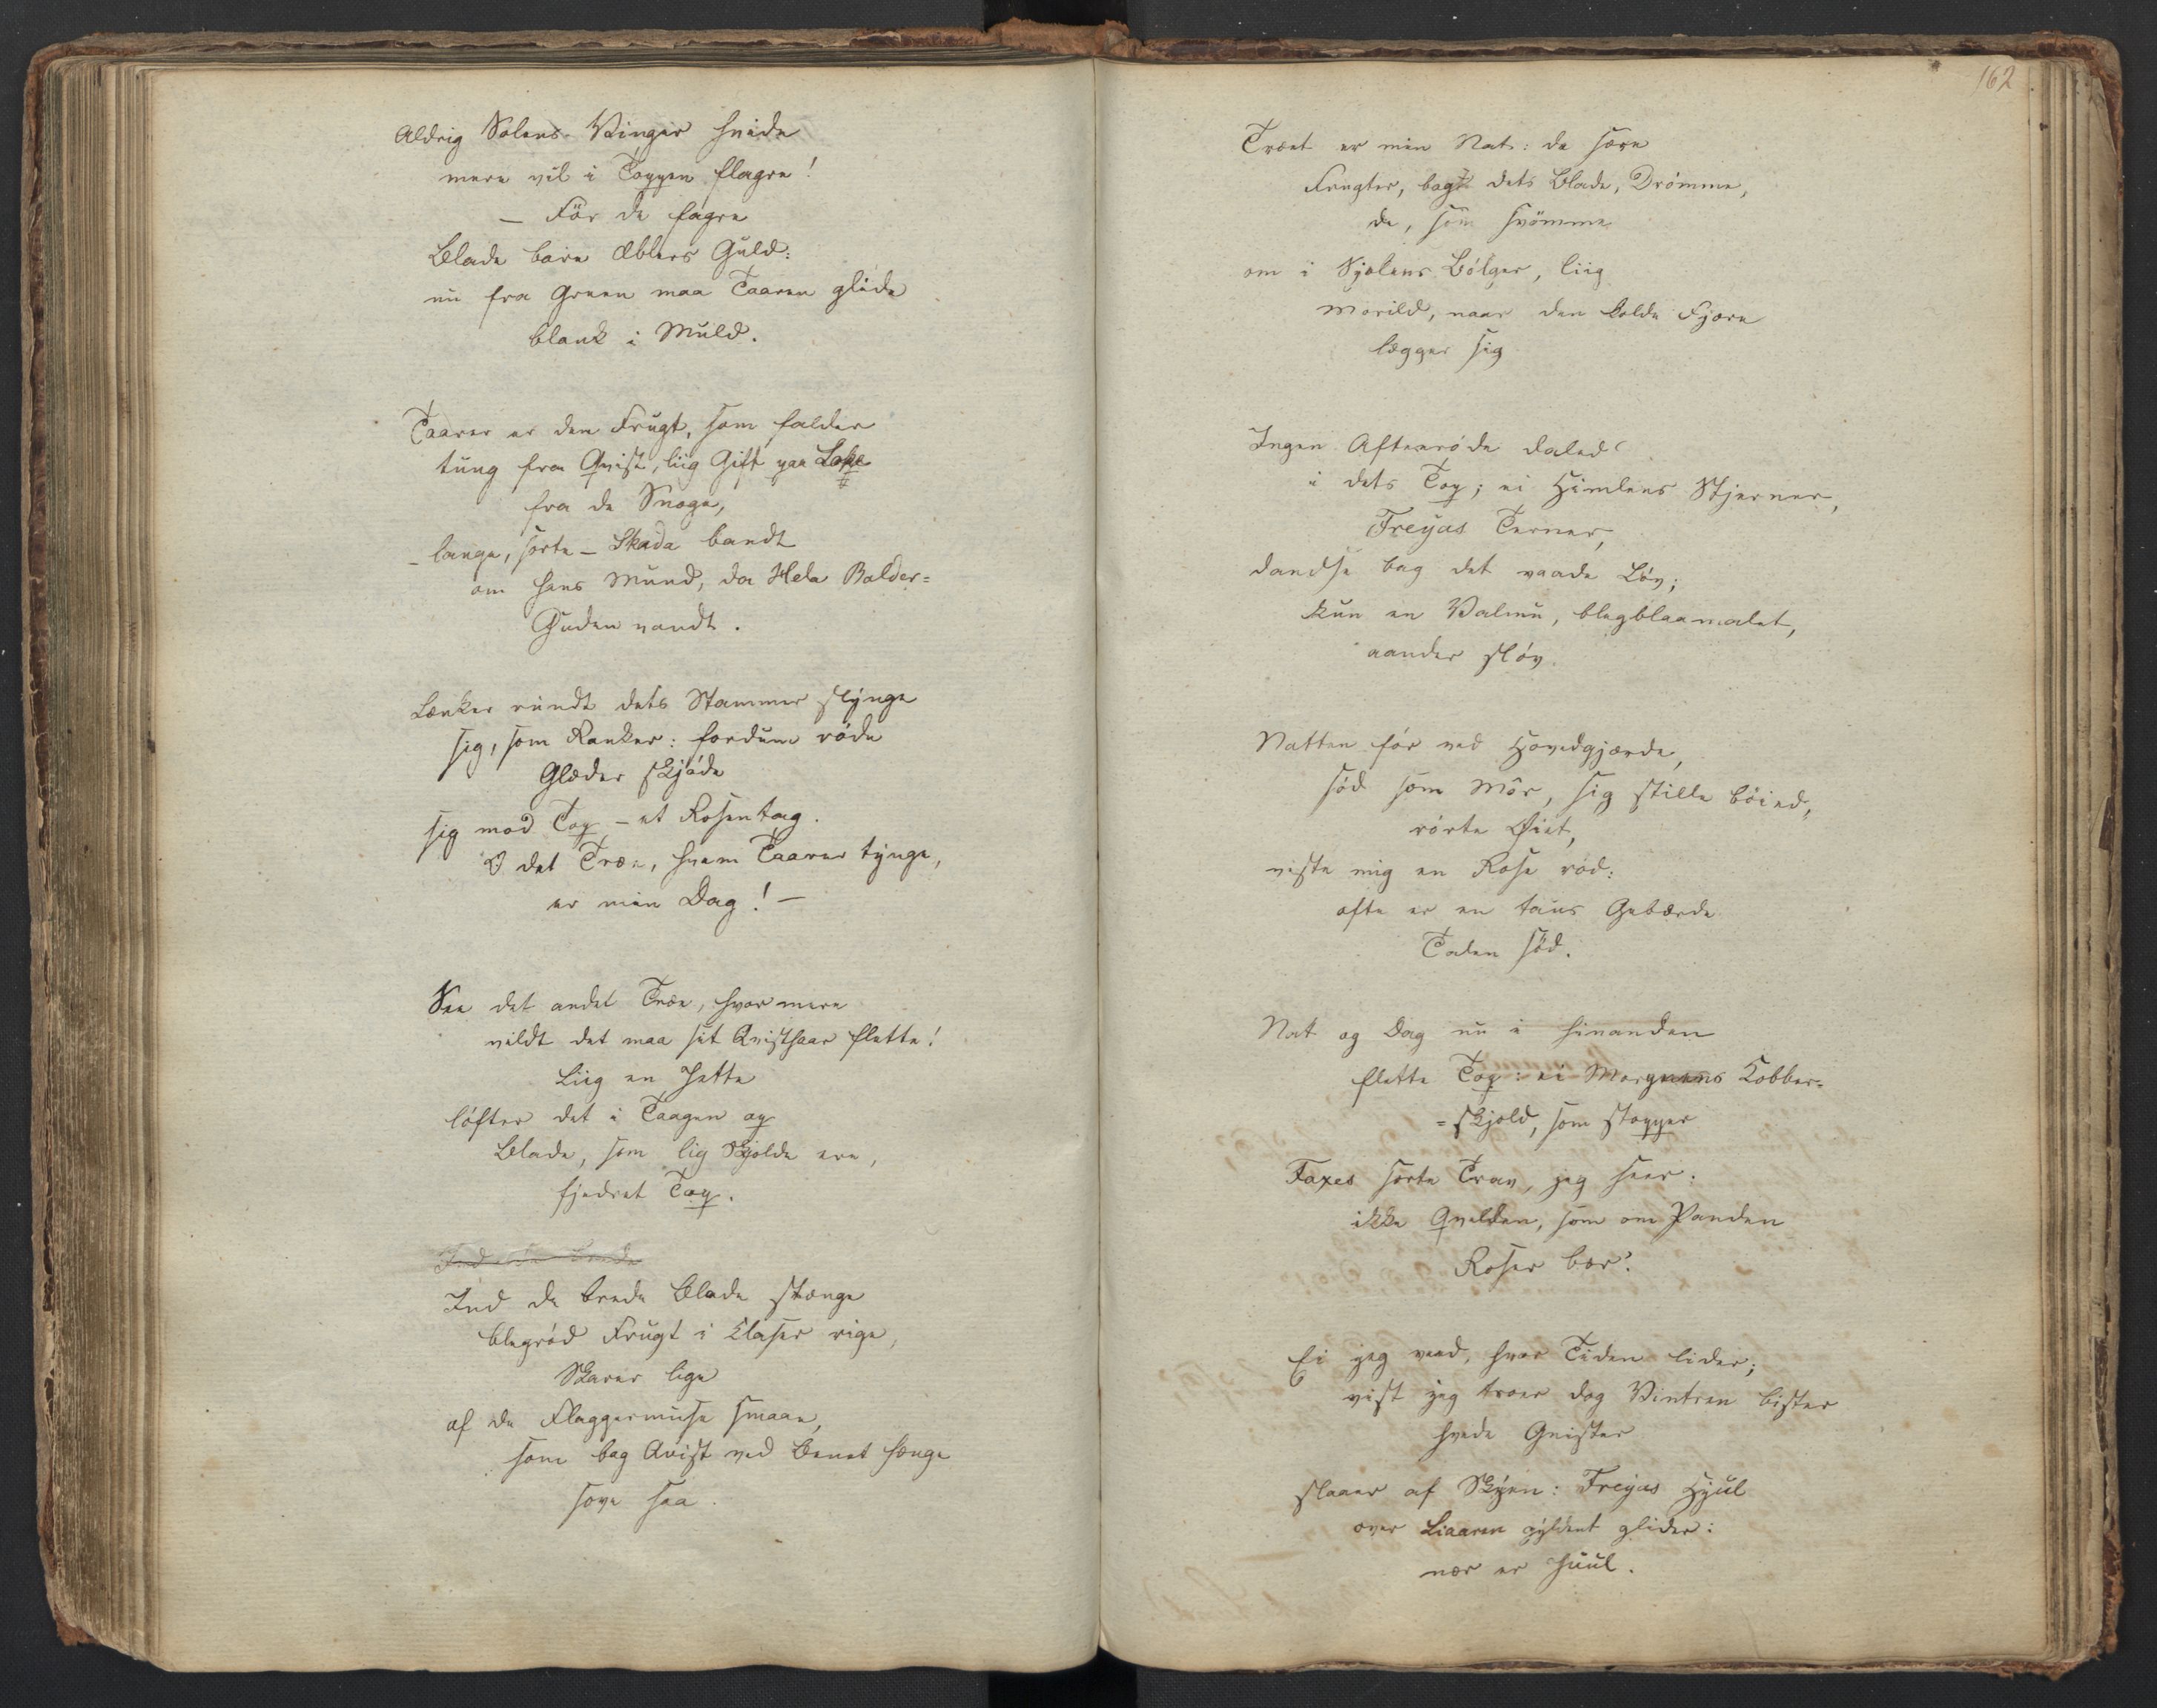 Aldrig Solens Vinger hvide
mere vil i Toppen flagre!
– För de fagre
Blade bare Æblers Guld:
nu fra Green maa Taaren glide
blank i Muld.
Taarer er den Frugt, som falder
tung fra Qvist, liig Gift paa Loke
fra de Snoge,
– lange, sorte – Skada bandt
om hans Mund, da Hela Balder=
Guden vandt.
Lænker rundt dets Stammer slynge
sig, som Ranker: fordum röde
Glæder skjöde
sig mod Top – et Rosentag.
O det Træe, hvem Taarer tynge,
er min Dag! –
See det andet Træe, hvor mere
vildt det maa sit Qvisthaar flette!
Liig en Jette
löfter det i Taagen op
Blade, som lig Skjolde ere,
fjedret Top.
Ind de brede
Ind de brede Blade stænge
blegröd Frugt i Claser rige,
Skarer lige
af de Flaggermuse smaae,
som bag Qvist ved Benet hænge
sove saa.
162
Træet er min Nat: de sære
Frugter, bag dets Blade, Drömme,
de, som svömme
om i Sjelens Bölger, liig
Morild, naar den kolde Fjære
lægger sig
Ingen Aftenröde daled'
i dets Top; ei Himlens Stjerner,
Freyas Terner,
dandse bag det vaade Löv;
kun en Valmu, blegblaamalet,
aander slöv.
Natten för ved Hovedgjærde,
söd som Mör, sig stille böied,
rörte Öiet,
viste mig en Rose röd:
ofte er en taus Gebærde
Talen söd.
Nat og Dag nu i hinanden
flette Top: ei Morgnens Kobber=
=skjold, som stopper
Faxes sorte Trav, jeg seer:
ikke Qvelden, som om Panden
Roser bær'.
Ei jeg veed, hvor Tiden lider;
vist jeg troer dog Vintren bister
hvide Gnister
slaaer af Skyen: Freyas Hjul
over Liaaren gyldent glider:
nær er Juul.